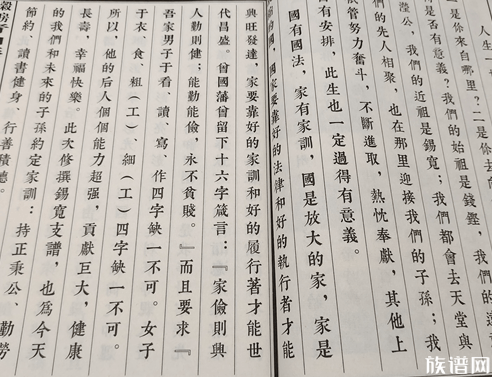 人生一
二是你來自那里？二是你去向
是否有意義？我們的始祖是錢鏗，我們
瀅公，我們的近祖是錫寬；我們都會去天堂與
的我們的先人相聚，也在那里迎接我們的子孫；我
管努力奮斗，不斷進取，熱忱奉獻，其他上
有安排，此生也一定過得有意義。
國有國法，家有家訓，國是放大的家，家是
的國，國家要靠好的法律和好的執行者才能
興旺發達，家要靠好的家訓和好的履行著才能世
代昌盛。曾國藩曾留下十六字箴言：『家儉則興
人勤則健；能勤能儉，永不貧賤。』而且要求『
吾家男子于看、讀、寫、作四字缺一不可。女子
于衣、食、粗（工）、細（工）四字缺一不可。
所以，他的后人個個能力超强，貢獻巨大，健康
長壽、幸福快樂。此次修撰錫寬支譜，也爲今天
的我們和未來的子孫約定家訓：持正秉公、勤勞
節約、讀書健身、行善積德。
族谱网